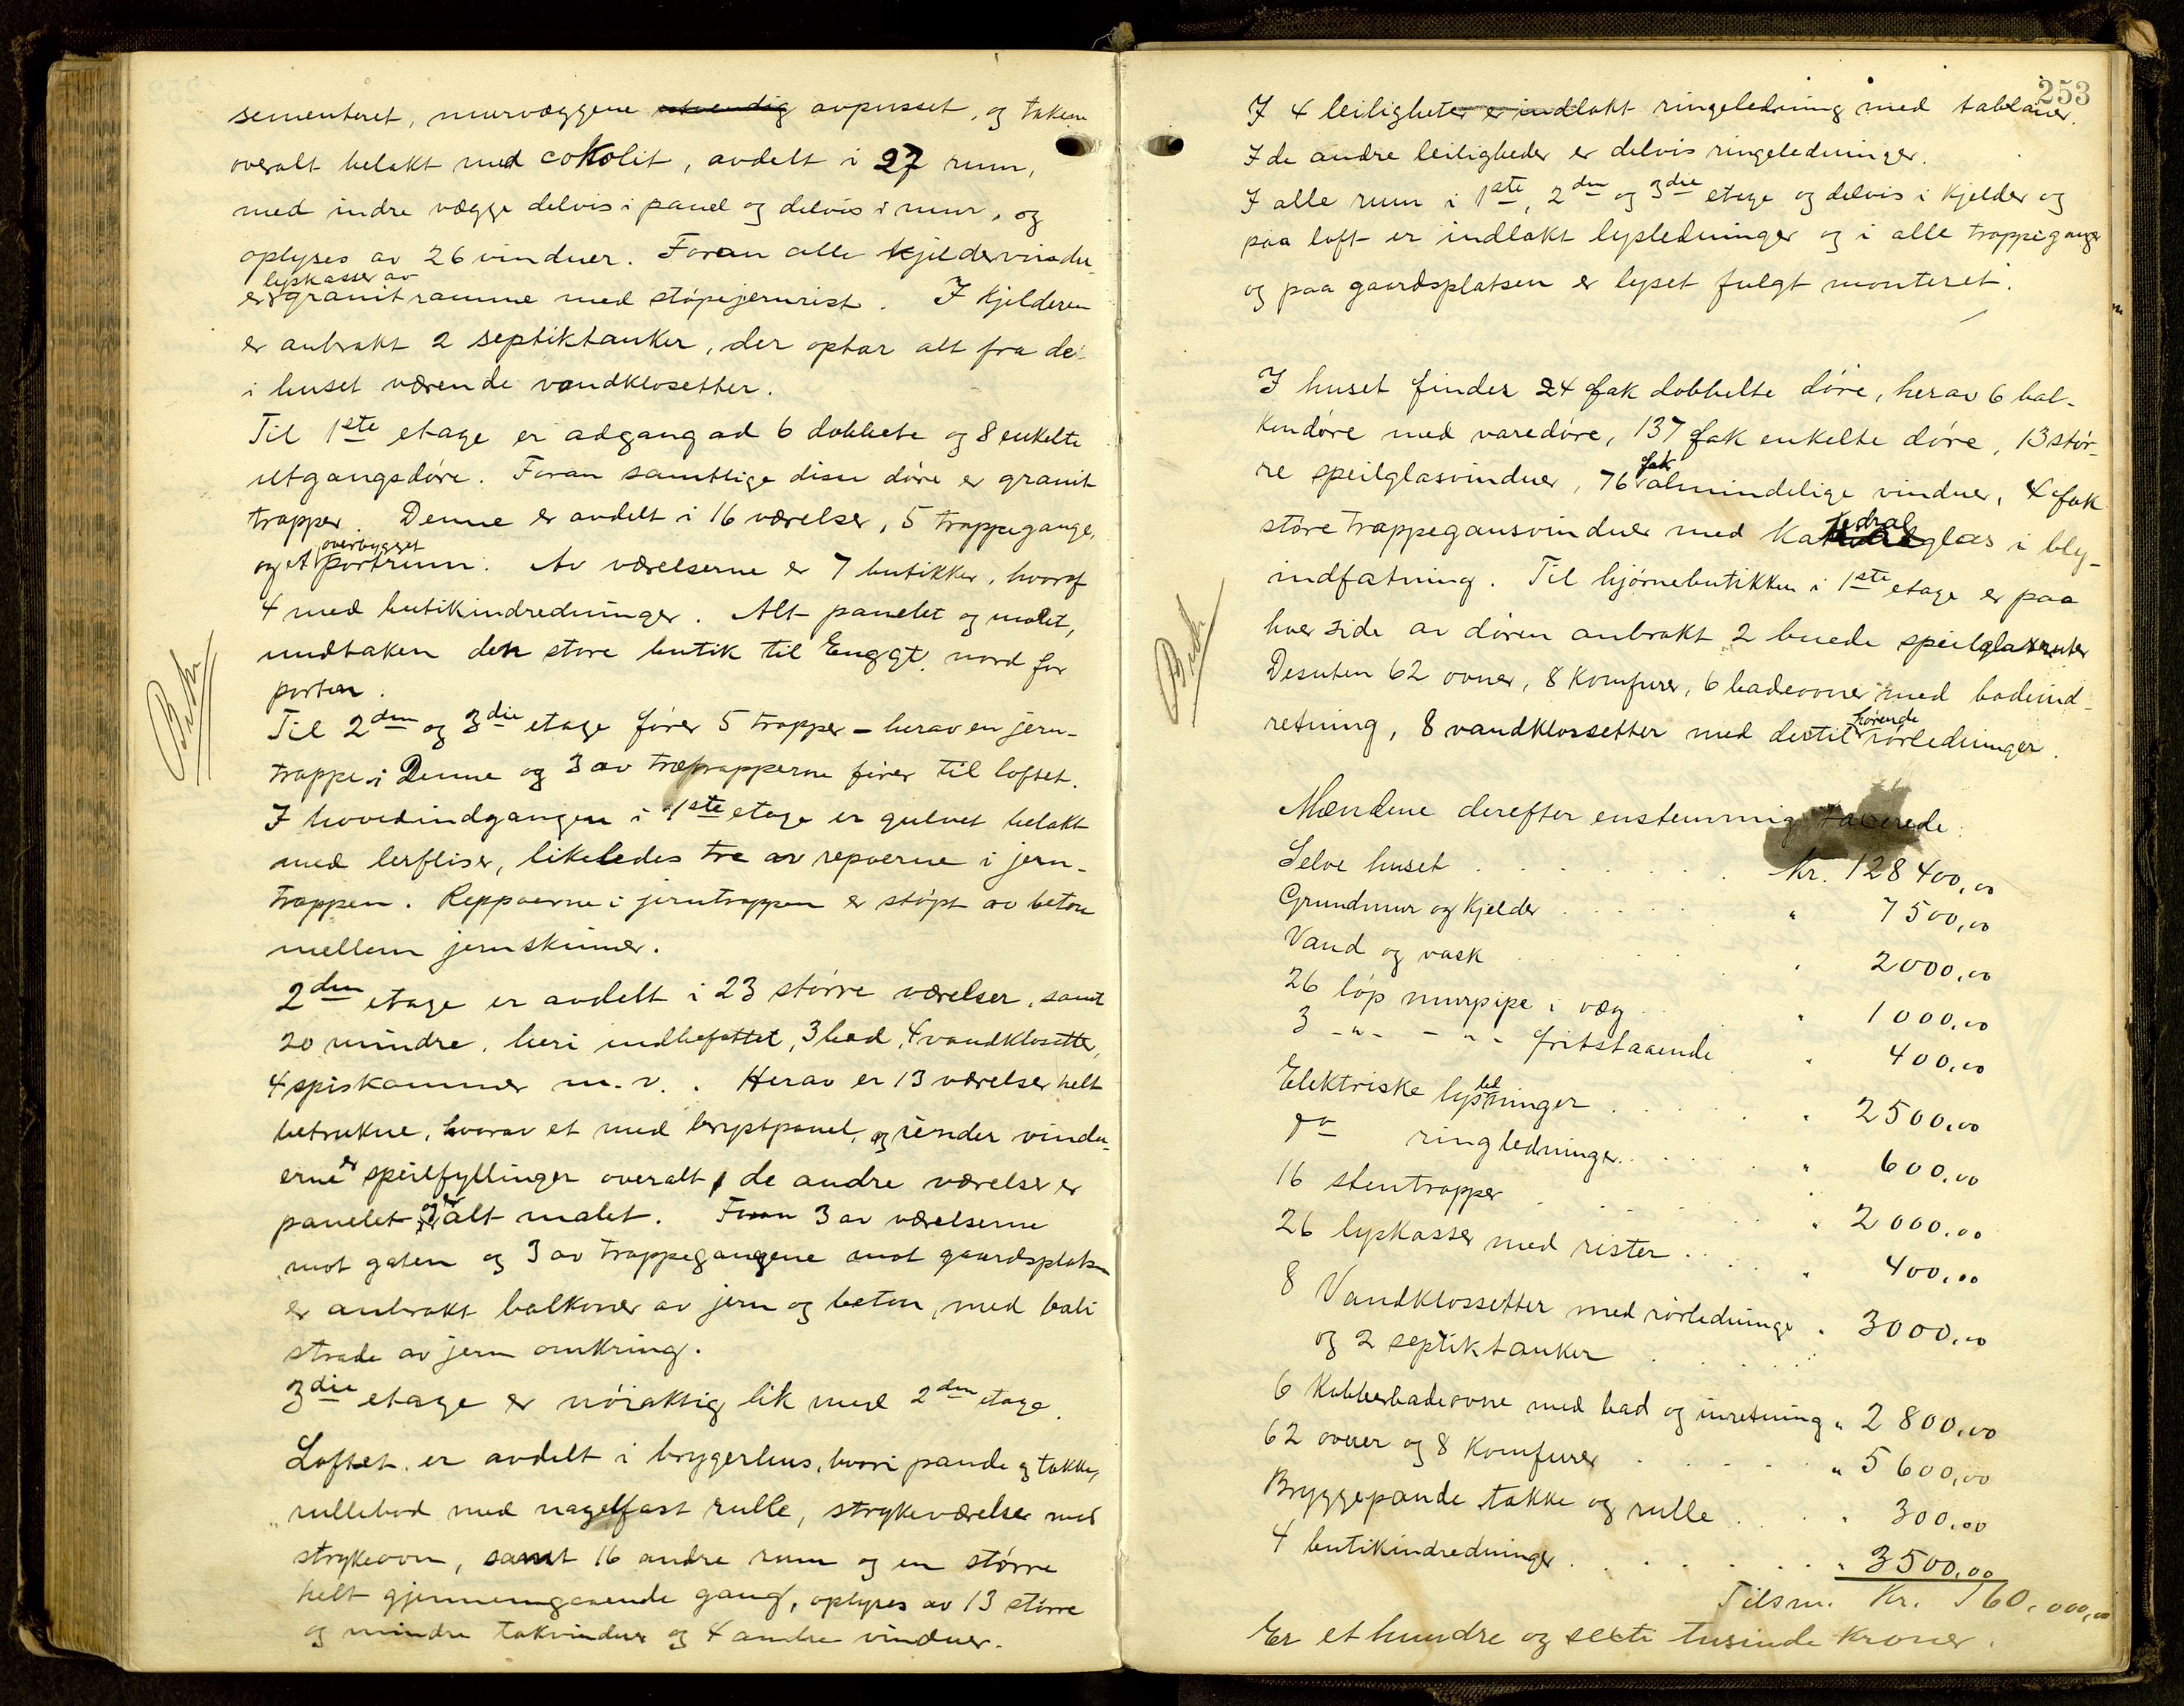 sementeret, murvæggene utvendig avpusset, og taken
overalt belakt med cokolit, avdelt i 27 rum,
med indre vægge delvis i panel og delvis i mur, og
oplyses av 26 vinduer. Foran alle kjeldervindu-
er lyskasser av granitramme med støpejernrist. I Kjelderen
er anbrakt 2 septiktanker, der optar alt fra de
i huset værende vandklosetter.
Til 1ste etage er adgang ad 6 dobbelte og 8 enkelte
utgangsdøre. Foran samtlige disse døre er granit
trapper. Denne er avdelt i 16 værelser, 5 trappegange,
og et overbygget portrum. Av værelserne er 7 butikker, hvoraf
4 med butikindredninger. Alt panelet og malet,
undtaken den store butik til Enggt. nord for
porten.
Til 2den og 3die etage fører 5 trapper - herav en jern-
trappe; Denne og 3 av trætrapperne fører til loftet.
I hovedindgangen i 1ste etage er gulvet belakt
med lerfliser, likeledes tre av repoerne i jern-
trappen. Reppoerne i jerntrappen er støpt av beton
mellem jernskinner.
2den etage er avdelt i 23 større værelser, samt
20 mindre, heri indbefattet, 3 bad, 4 vandklosetter,
4 spiskammer m.v. Herav er 13 værelser helt
betrukne, hvorav et med brystpanel, og under vindu-
erne er speilfyllinger overalt, de andre værelser er
panelet og er alt malet. Foran 3 av værelserne
mot gaten og 3 av trappegangene mot gaardsplatsen
er anbrakt balkoner av jern og beton, med bali
strade av jern omkring.
3die etage er nøiaktig lik med 2den etage.
Loftet er avdelt i bryggerhus, hvori pande og takke,
rullebod med nagelfast rulle, strykeværelse med
strykeovn, samt 16 andre rum og en større
helt gjennemgaaende gang, oplyses av 13 større
og mindre takvinduer og 4 andre vinduer.
253
I 4 leiligheter er indlakt ringeledning med tablauer.
I de andre leiligheder er delvis ringeledninger.
I alle rum i 1ste, 2den og 3die etage og delvis i Kjelder og
paa loft er indlakt lysledninger og i alle trappegange
og paa gaardsplatsen er lyset fulgt monteret.
I huset findes 24 fak dobbelte døre, herav 6 bal-
kondøre med varedøre, 137 fak enkelte døre, 13 stør-
re speilglasvinduer, 76 fak almindelige vinduer, 4 fak
støre trappegansvinduer med Katedralglas i bly-
indfatning. Til hjørnebutikken i 1ste etage er paa
hver side av døren anbrakt 2 buede speilglasruter
Desuten 62 ovner, 8 Komfurer, 6 badeovner med badeind-
retning, 8 vandklossetter med dertil hørende rørledninger.
Mændene derefter enstemmig taxerede:
Selve huset . . . . . . . Kr. 128 400,00
Grundmur og Kjelder . . . . " 7 500,00
Vand og vask . . . . " 2000,00
26 løp murpipe i væg . . . " 1000,00
3 -"- - "- fritstaaende " 400,00
Elektriske lysledninger . . . . " 2500,00
do ringledninger . . . . " 600,00
16 stentrapper . . . . " 2000,00
26 lyskasser med rister . . . " 400,00
8 Vandklossetter med rørledninge " 3000,00
og 2 septiktanker . . . .
6 Kobberbadeovne med bad og inretning " 2 800,00
62 ovner og 8 Komfurer . . . . " 5 600,00
Bryggepande takke og rulle . . . " 300,00
4 butikindredninger . . . . . " 3500,00
Tilsm. Kr. 160.000,00
Er et hundre og sexti tusinde Kroner.